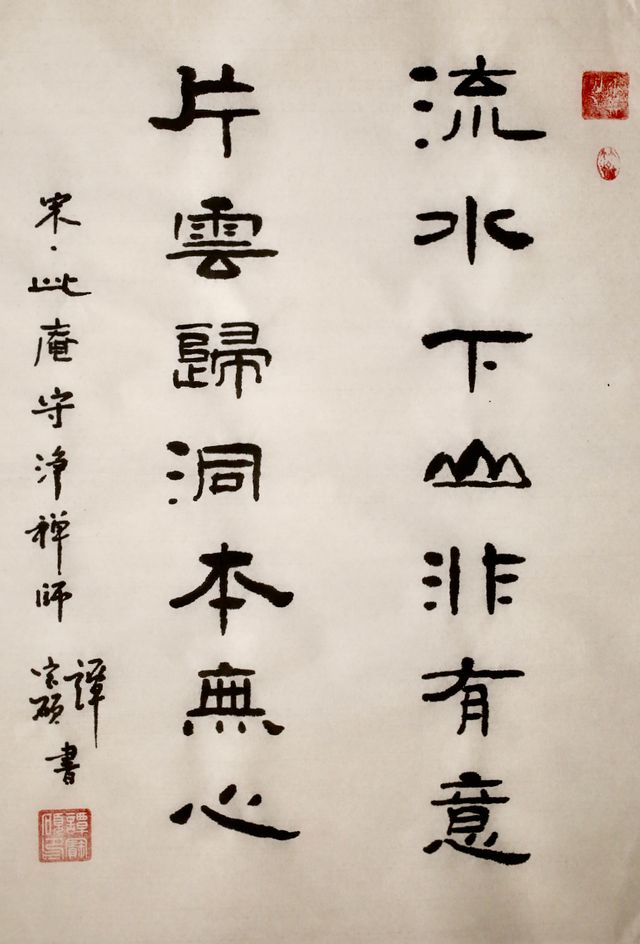 流水下山非有意
片雲歸洞本無心
宋·此庵守淨禅師
譚
書